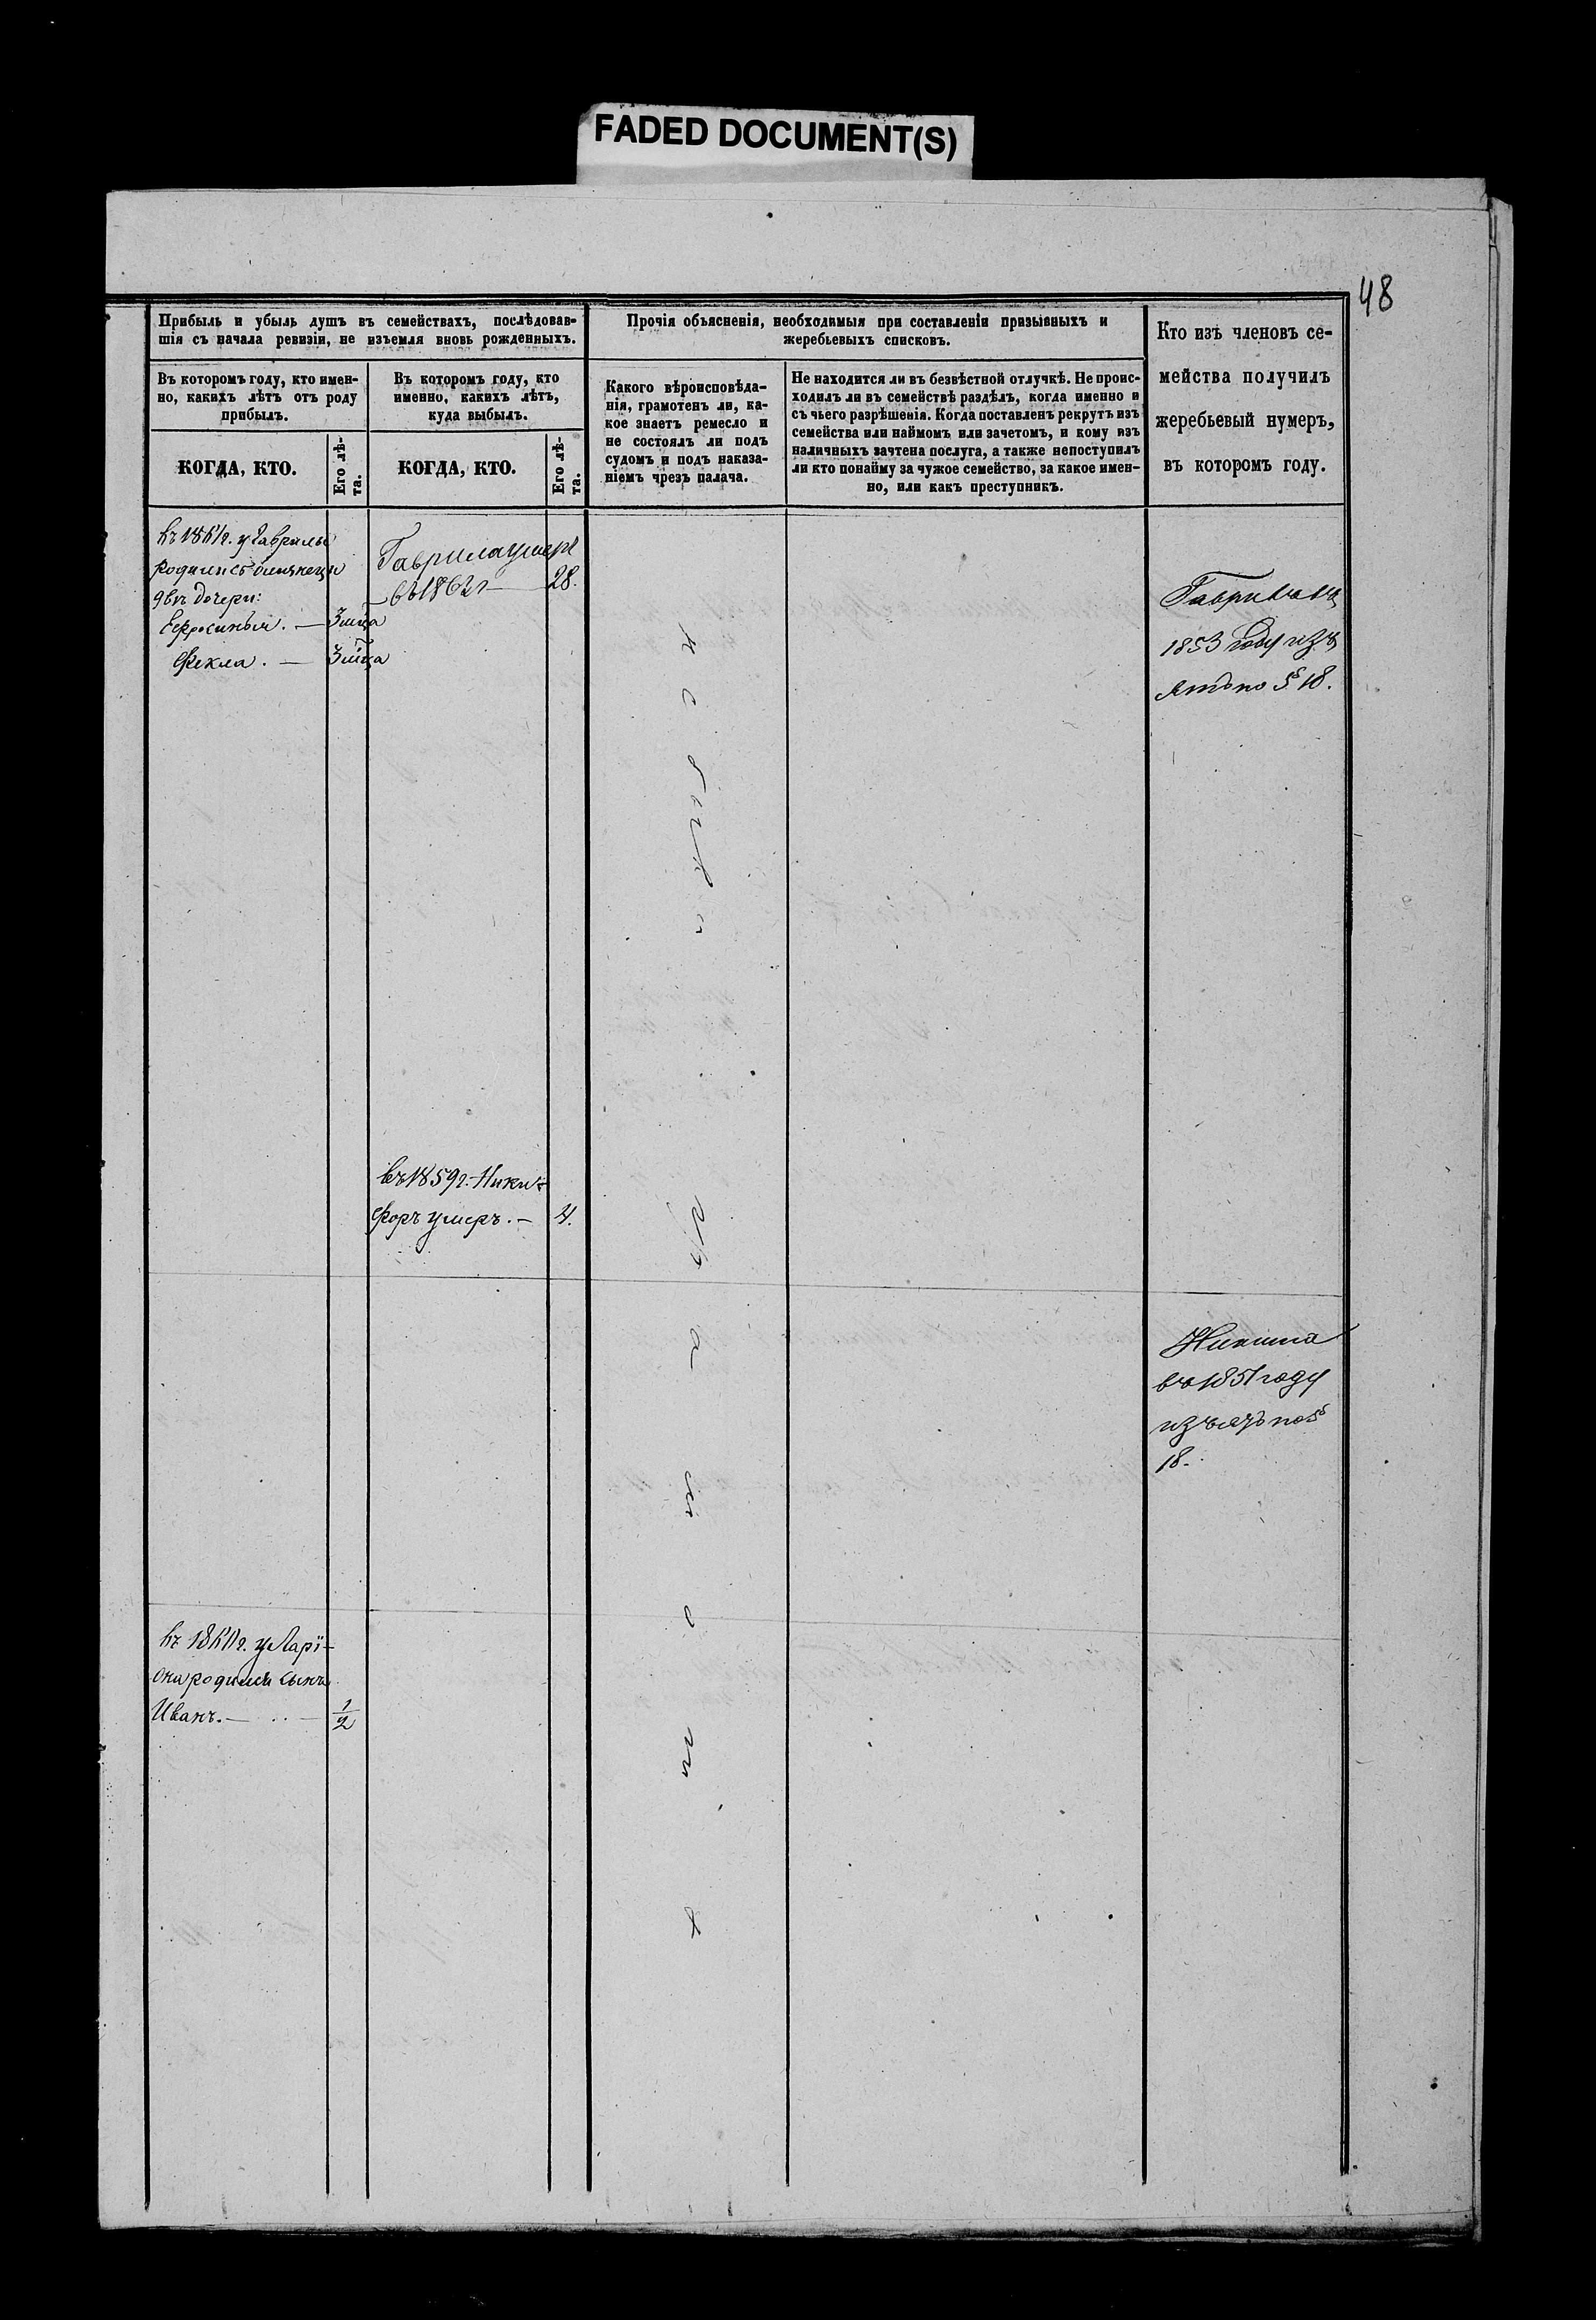 FADED DOCUMENT(S)
48
Прибыль и убыль душъ въ семействахъ, послѣдовав-
шія съ начала ревизіи, не изъемля вновь рожденныхъ.
Прочія объясненія, необходимыя при составленіи призывныхъ и
жеребьевыхъ списковъ.
Кто изъ членовъ се-
мейства получилъ
жеребьевый нумеръ,
въ которомъ году.
Въ которомъ году, кто имен-
но, какихъ лѣтъ отъ роду
прибылъ.
Въ которомъ году, кто
именно, какихъ лѣтъ,
куда выбылъ.
Какого вѣроисповѣда-
нія, грамотенъ ли, ка-
кое знаетъ ремесло и
не состоялъ ли подъ
судомъ и подъ наказа-
ніемъ чрезъ палача.
Не находится ли въ безвѣстной отлучкѣ. Не проис-
ходилъ ли въ семействѣ раздѣлъ, когда именно и
съ чьего разрѣшенія. Когда поставленъ рекрутъ изъ
семейства или наймомъ или зачетомъ, и кому изъ
наличныхъ зачтена послуга, а также непоступилъ
ли кто понайму за чужое семейство, за какое имен-
но, или какъ преступникъ.
КОГДА, КТО.
Его лѣ-
та.
КОГДА, КТО.
Его лѣ-
та.
въ 1861г. у Гаврилы
родились близнецы
двѣ дочери:
Ефросинья. — 3 мѣца
Фекла. — 3 мѣца
Гаврила умеръ
въ 1862г — 28.
Гаврила въ
1853 году изъ
ятъ по § 18.
въ 1859г. Ники-
форъ умеръ. — 4.
Никита
въ 1851 году
изъятъ по §
18.
въ 1861г. у Ларі-
она родился сынъ
Иванъ. — 1/2